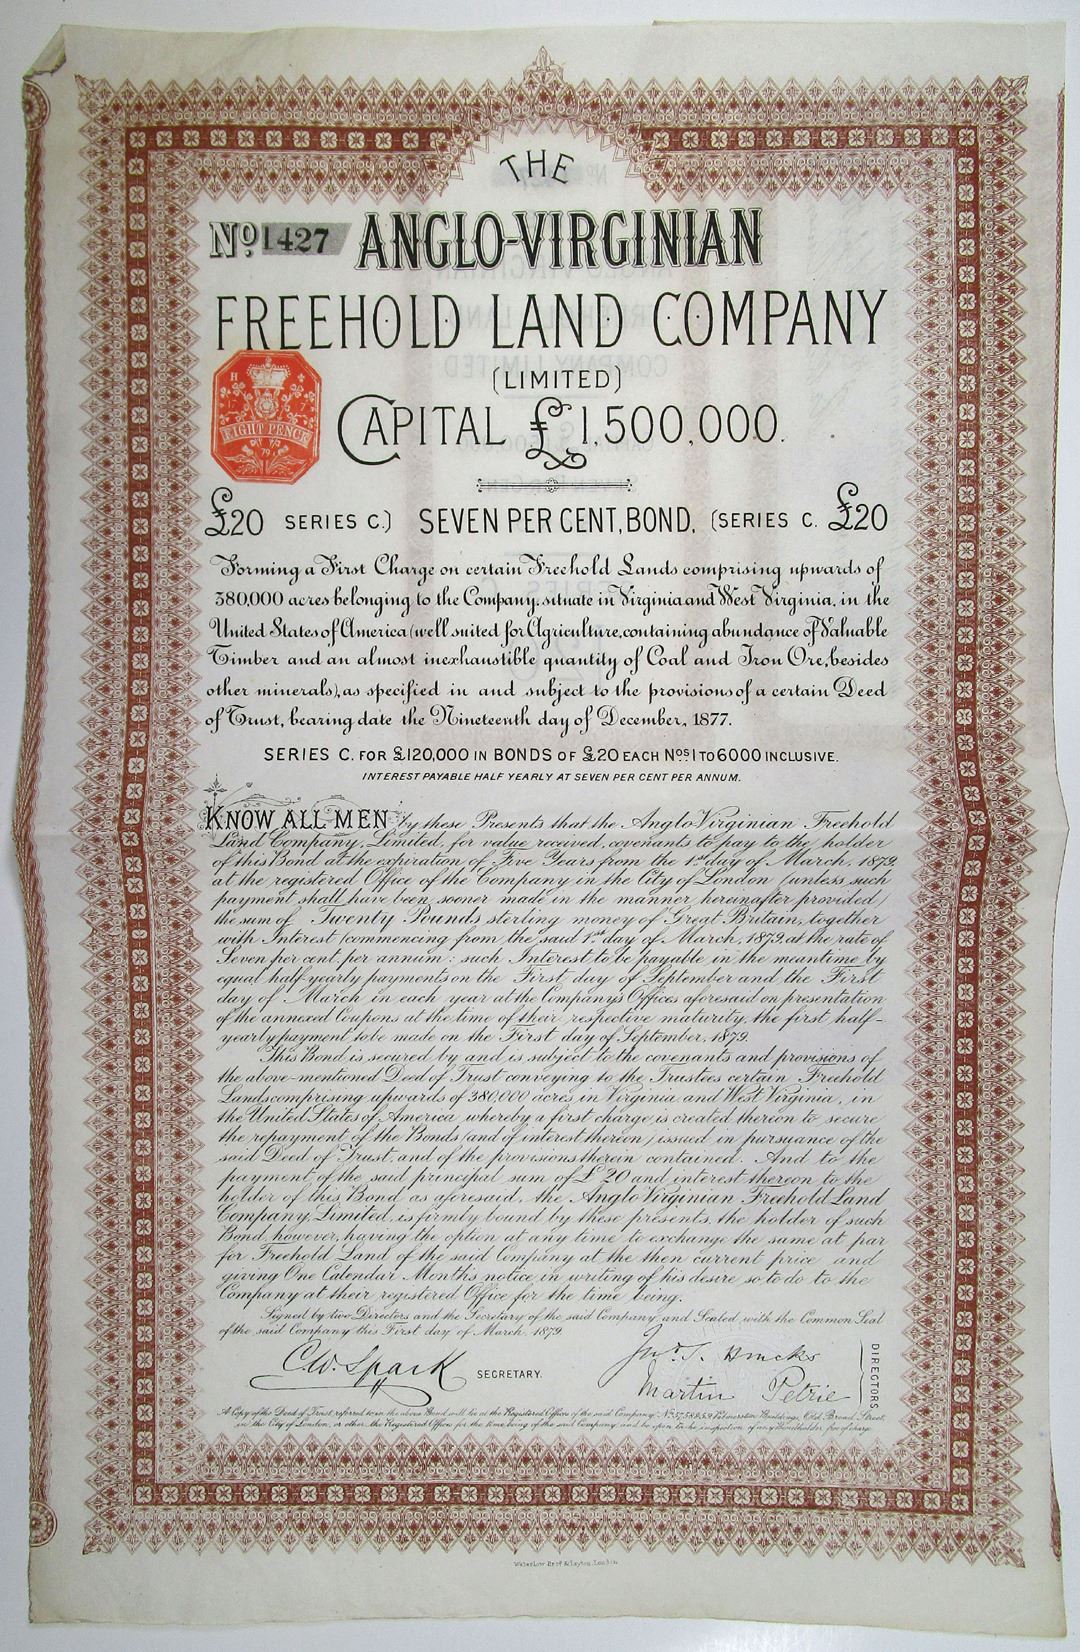 THE
No. 1427 ANGLO-VIRGINIAN
FREEHOLD LAND COMPANY
(LIMITED)
CAPITAL £1,500,000.
EIGHT PENCE
79
£20 SERIES C.) SEVEN PER CENT, BOND, (SERIES C. £20
Forming a First Charge on certain Freehold Lands comprising upwards of
380,000 acres belonging to the Company, situate in Virginia and West Virginia, in the
United States of America (well suited for Agriculture, containing abundance of Valuable
Timber and an almost inexhaustible quantity of Coal and Iron Ore, besides
other minerals), as specified in and subject to the provisions of a certain Deed
of Trust, bearing date the Nineteenth day of December, 1877.
SERIES C. FOR £120,000 IN BONDS OF £20 EACH Nos. 1 TO 6000 INCLUSIVE.
INTEREST PAYABLE HALF YEARLY AT SEVEN PER CENT PER ANNUM.
KNOW ALL MEN by these Presents that the Anglo Virginian Freehold
Land Company, Limited, for value received, covenants to pay to the holder
of this Bond at the expiration of Five Years from the 1st day of March, 1879
at the registered Office of the Company in the City of London (unless such
payment shall have been sooner made in the manner hereinafter provided)
the sum of Twenty Pounds sterling money of Great Britain, together
with Interest (commencing from the said 1st day of March, 1879, at the rate of
Seven per cent. per annum: such Interest to be payable in the meantime by
equal half-yearly payments on the First day of September and the First
day of March in each year at the Company's Offices aforesaid on presentation
of the annexed Coupons at the time of their respective maturity, the first half-
yearly payment to be made on the First day of September, 1879.
This Bond is secured by and is subject to the covenants and provisions of
the above-mentioned Deed of Trust conveying to the Trustees certain Freehold
Lands comprising upwards of 380,000 acres in Virginia and West Virginia, in
the United States of America whereby a first charge is created thereon to secure
the repayment of the Bonds (and of interest thereon) issued in pursuance of the
said Deed of Trust, and of the provisions therein contained. And to the
payment of the said principal sum of £20 and interest thereon to the
holder of this Bond as aforesaid, the Anglo Virginian Freehold Land
Company, Limited, is firmly bound by these presents, the holder of such
Bond, however, having the option at any time to exchange the same at par
for Freehold Land of the said Company at the then current price and
giving One Calendar Month's notice in writing of his desire so to do to the
Company at their registered Office for the time being.
Signed by two Directors and the Secretary of the said Company and Sealed with the Common Seal
of the said Company this First day of March, 1879.
C.W. Spark SECRETARY.
Jno. T. Hincks
Martin Petrie
DIRECTORS
A Copy of the Deed of Trust referred to in the above Bond will lie at the Registered Office of the said Company, Nos. 57, 58 & 59 Palmerston Buildings, Old Broad Street,
in the City of London, or other the Registered Office for the time being of the said Company, and be open to the inspection of any Bondholder, free of charge.
Waterlow Bros. & Layton, London